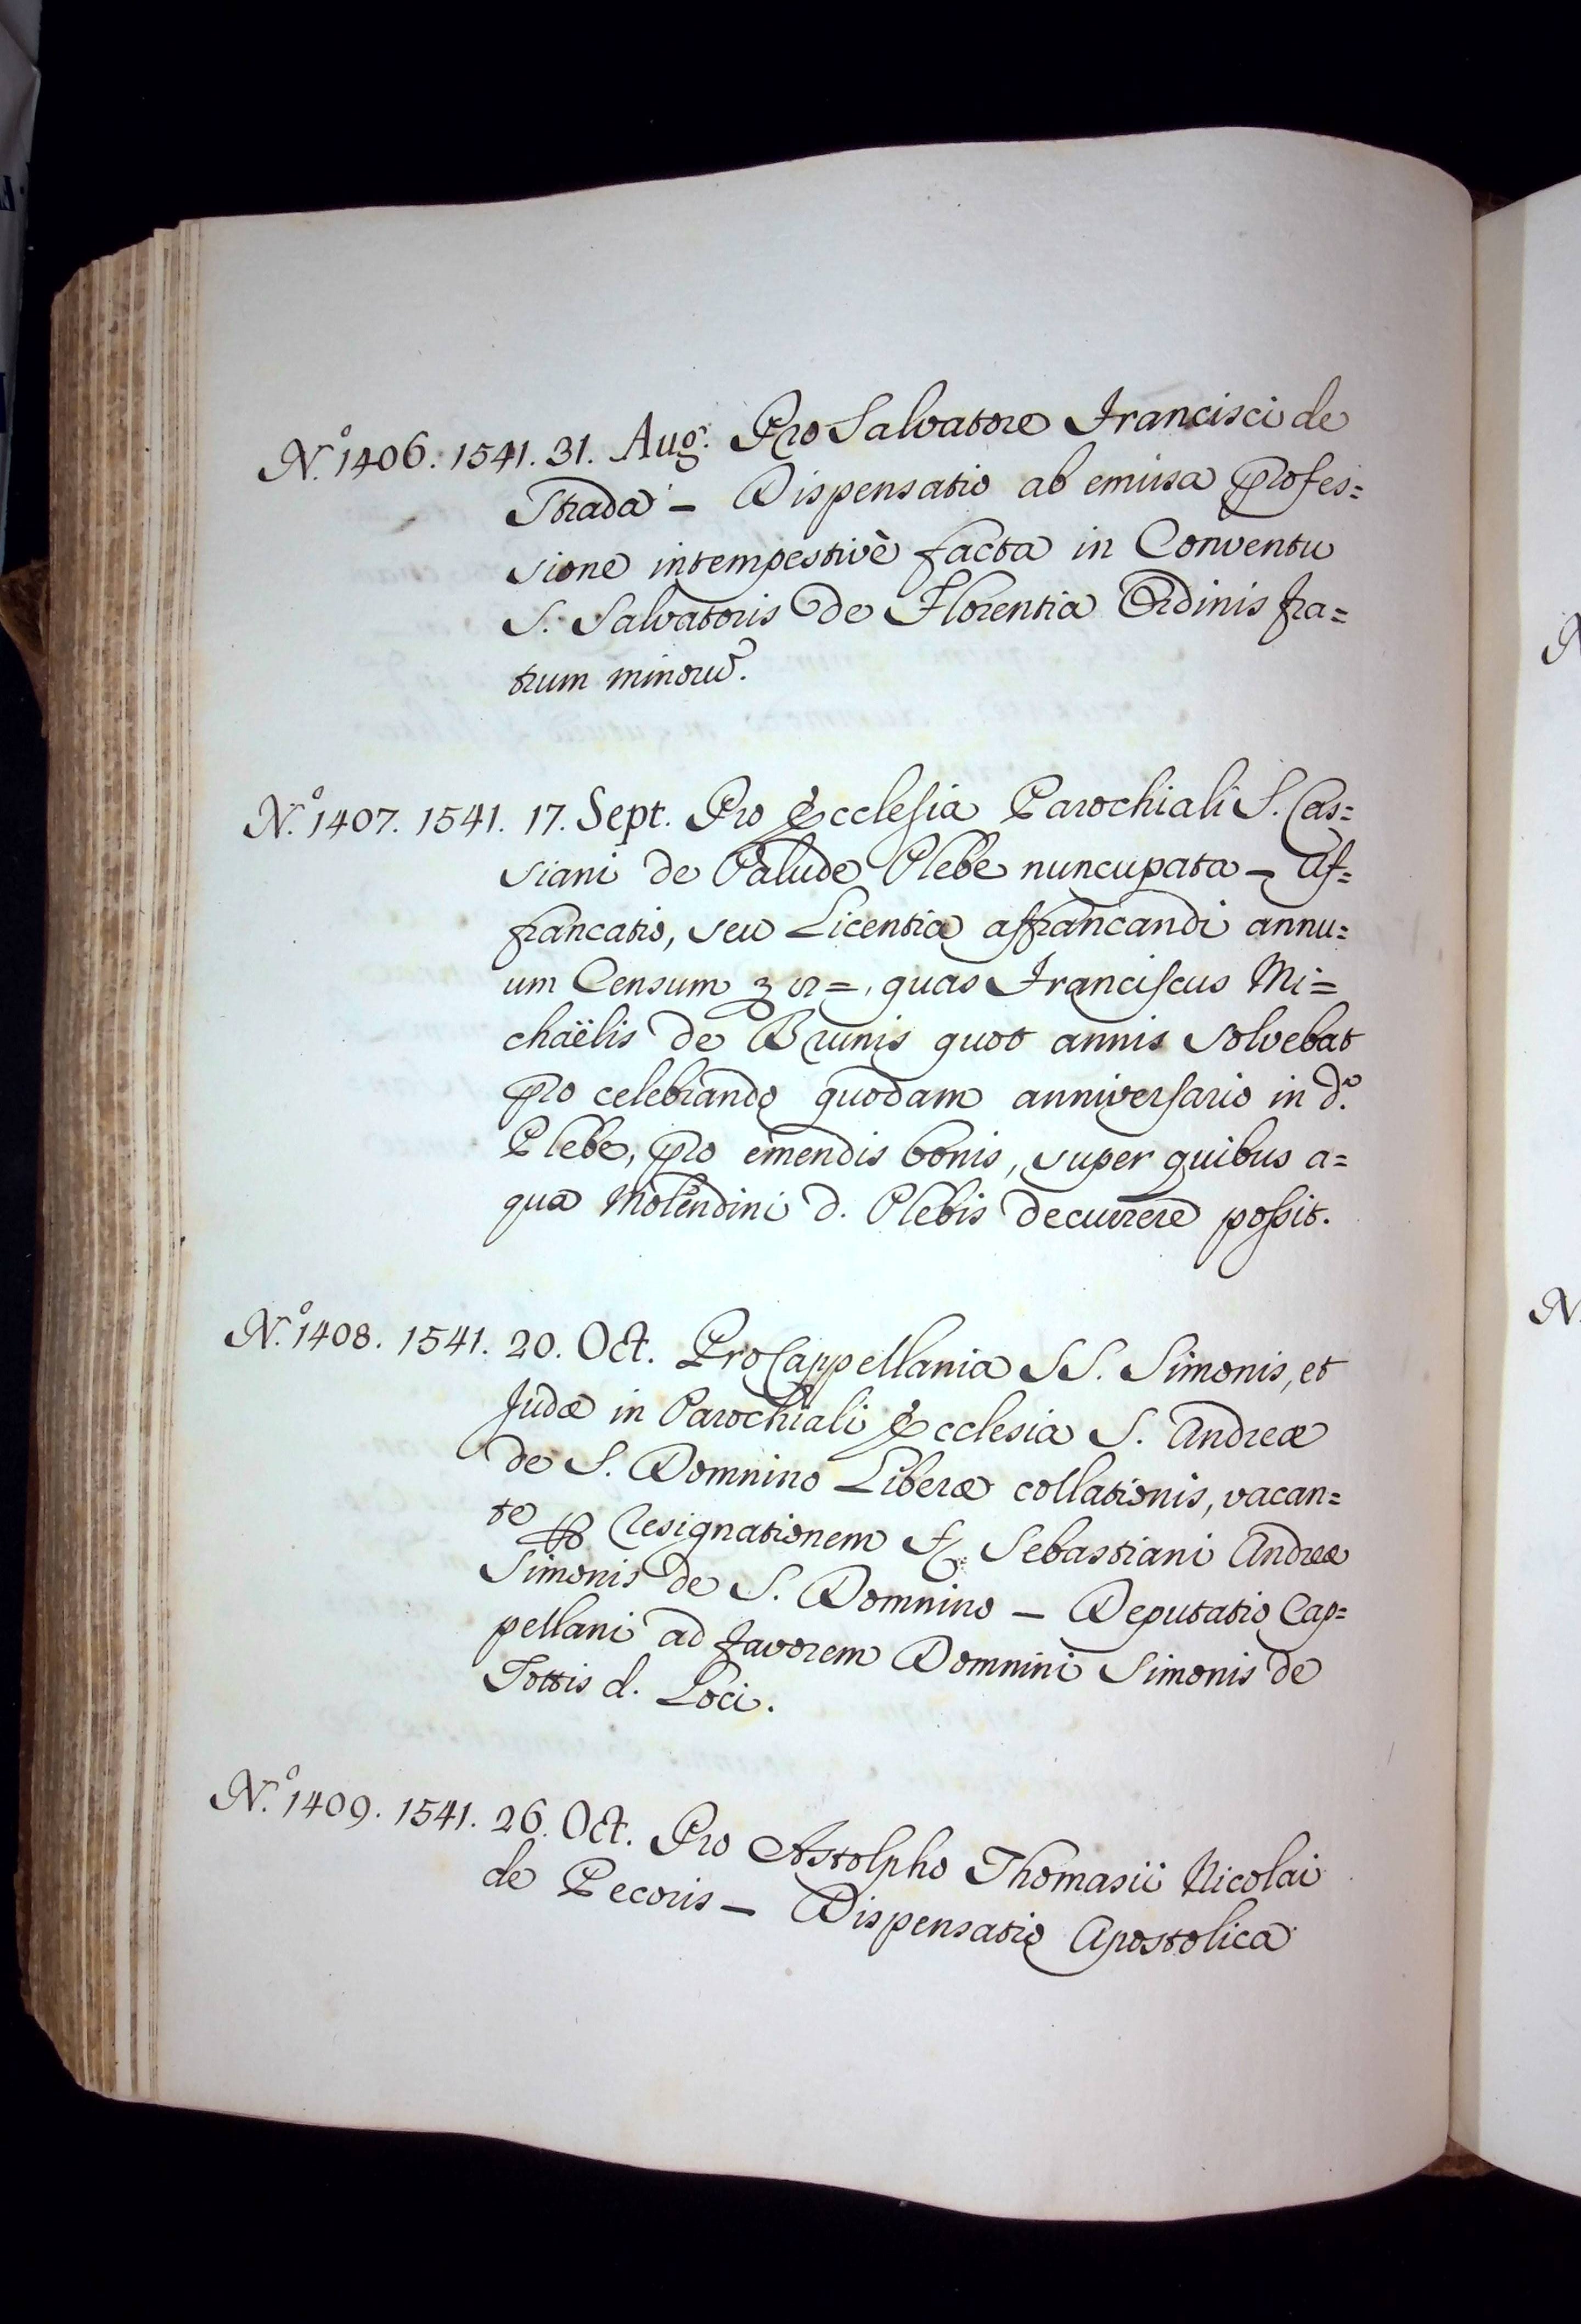 N.º 1406. 1541. 31. Aug. Pro Salvatore Francisci de
Strada – Dispensatio ab emissa profes=
sione intempestivè facta in Conventu
S. Salvatoris de Florentia Ordinis fra=
trum minorũ.
N.º 1407. 1541. 17. Sept. Pro Ecclesia Parochiali S. Cas=
siani de Palude Plebe nuncupata – Af=
francatio, seu Licentia affrancandi annu=
um Censum =, quas Franciscus Mi=
chaëlis de Brunis quot annis solvebat
pro celebrando quodam anniversario in d.ª
Plebe, pro emendis bonis, super quibus a=
qua Molendini d. Plebis decurrere possit.
N.º 1408. 1541. 20. Oct. Pro Cappellania SS. Simonis, et
Judæ in Parochiali Ecclesia S. Andreæ
de S. Domnino Liberæ collationis, vacan=
te Resignationem Sebastiani Andreæ
Simonis de S. Domnino – Deputatio Cap=
pellani ad favorem Domnini Simonis de
Tottis d. Loci.
N.º 1409. 1541. 26. Oct. Pro Astolpho Thomasii Nicolai
de Pecoris – Dispensatio Apostolica
N
N.